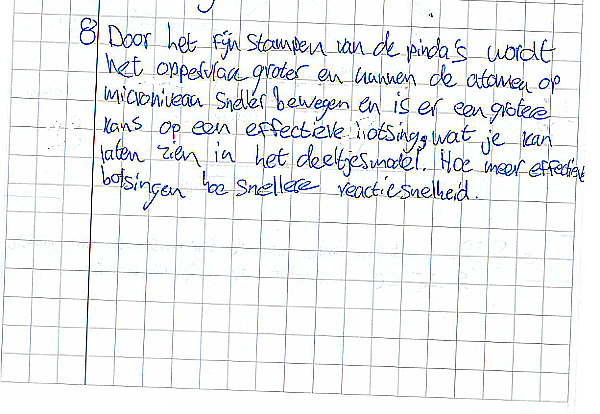 8 Door het fijn stampen van de pinda's wordt
het oppervlak groter en kunnen de atomen op
microniveau sneller bewegen en is er een grotere
kans op een effectieve botsing, wat je kan
laten zien in het deeltjesmodel. Hoe meer effectieve
botsingen hoe snellere reactiesnelheid.